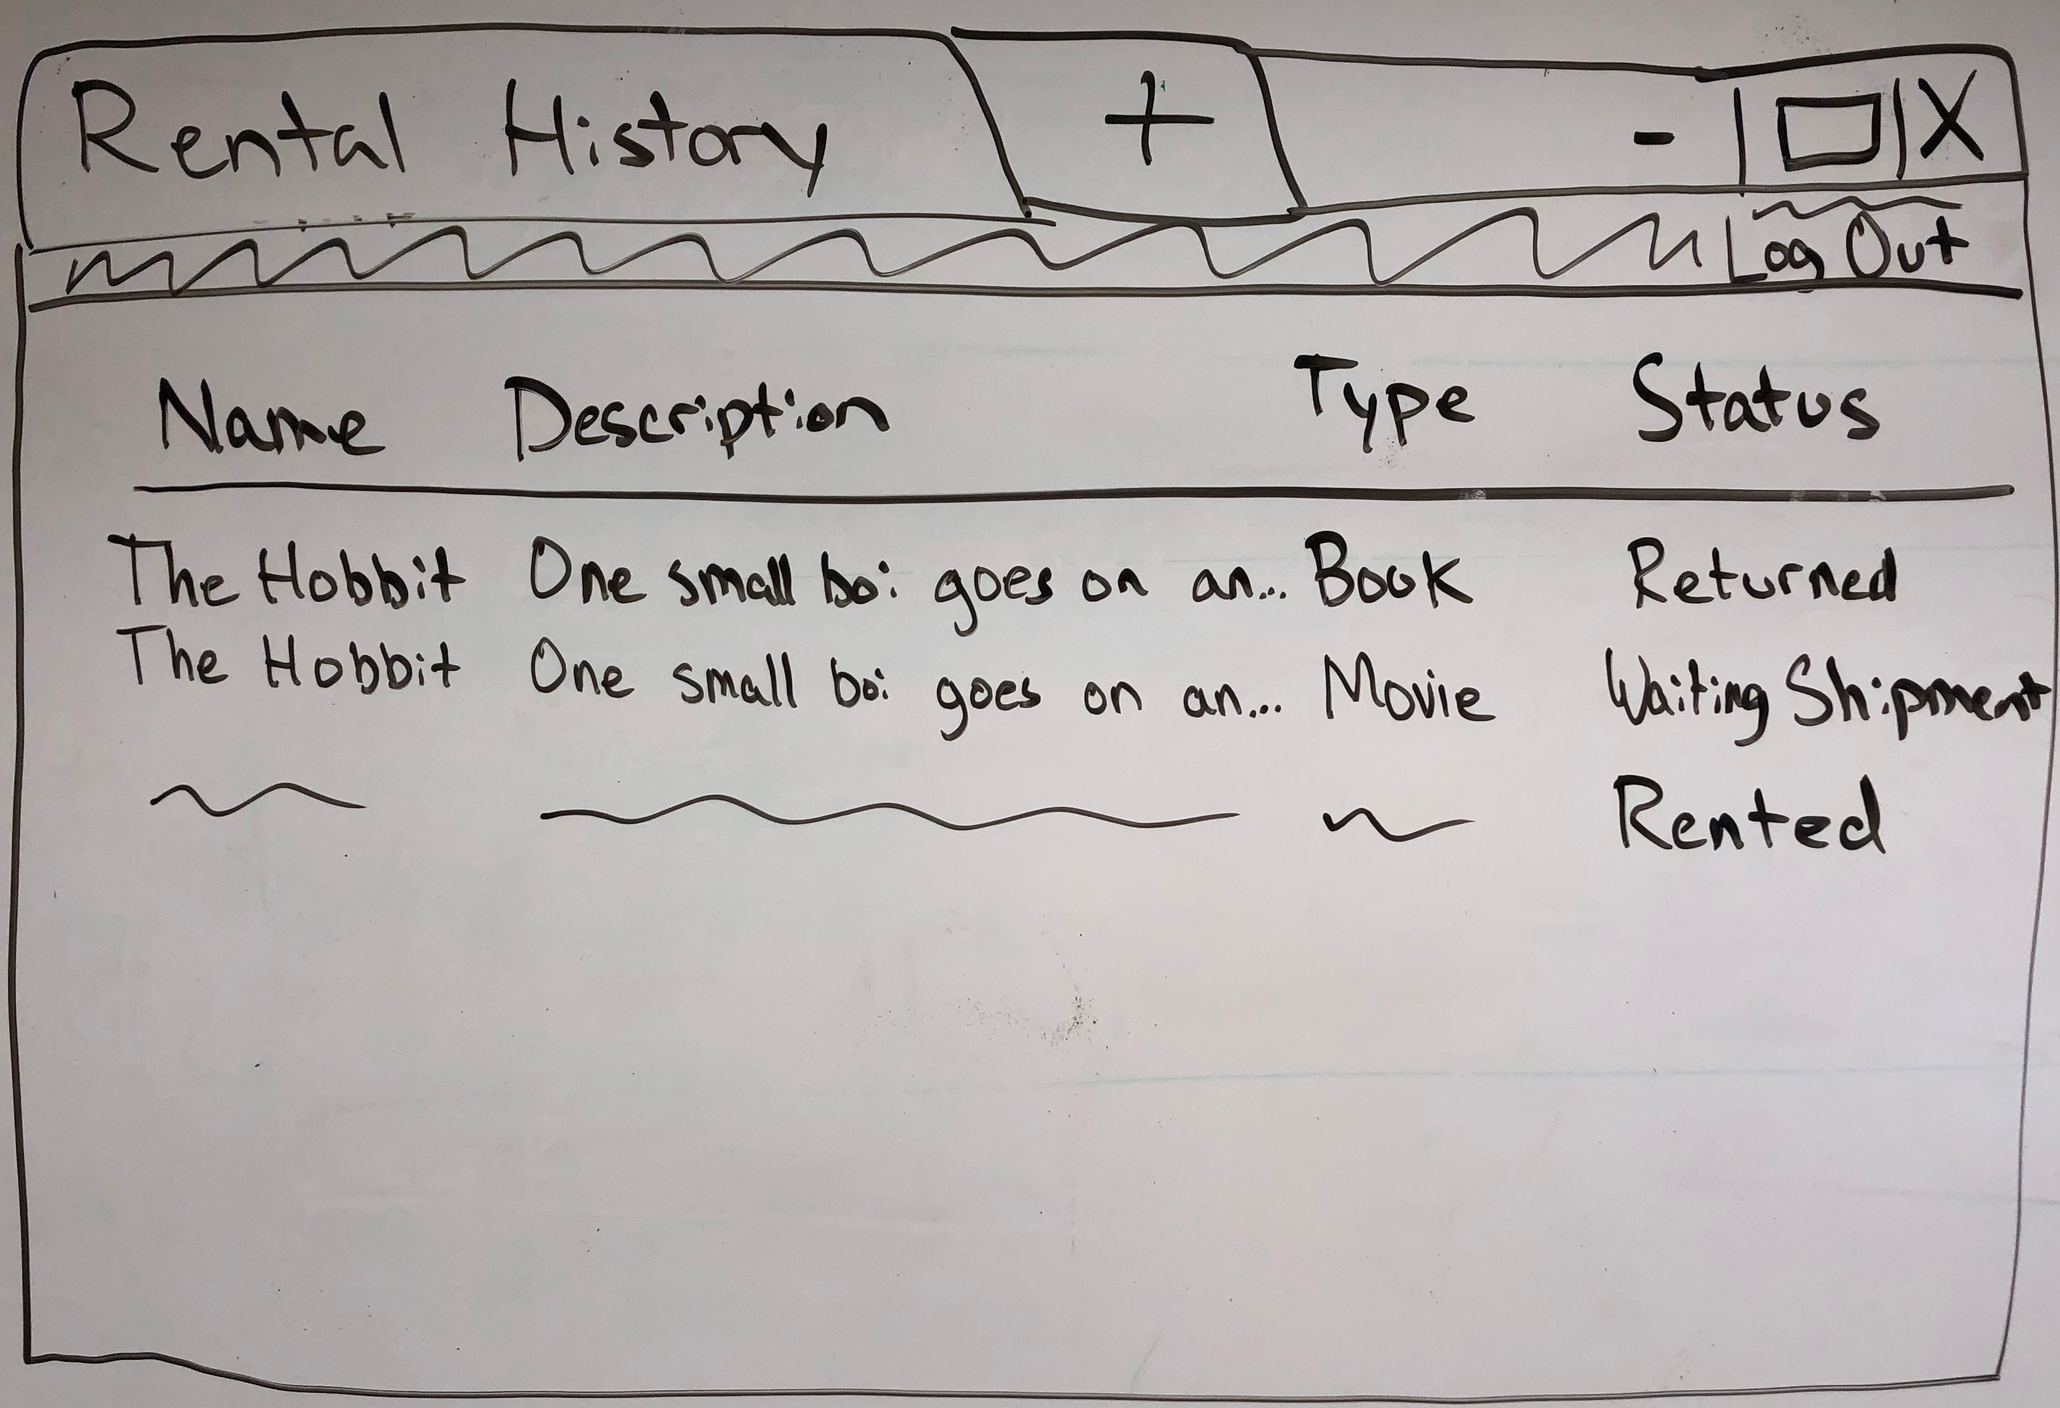 Rental History + - X
Log Out
Name Description Type Status
The Hobbit One small boi goes on an... Book Returned
The Hobbit One small boi goes on an... Movie Waiting Shipment
Rented